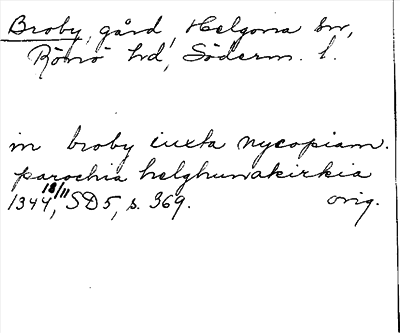 Broby, gård, Helgona sn,
Rönö hd, Söderm. l.
in broby iuxta nycopiam.
parochia helghunakirkia
1344 18/11, SD 5, s. 369. orig.